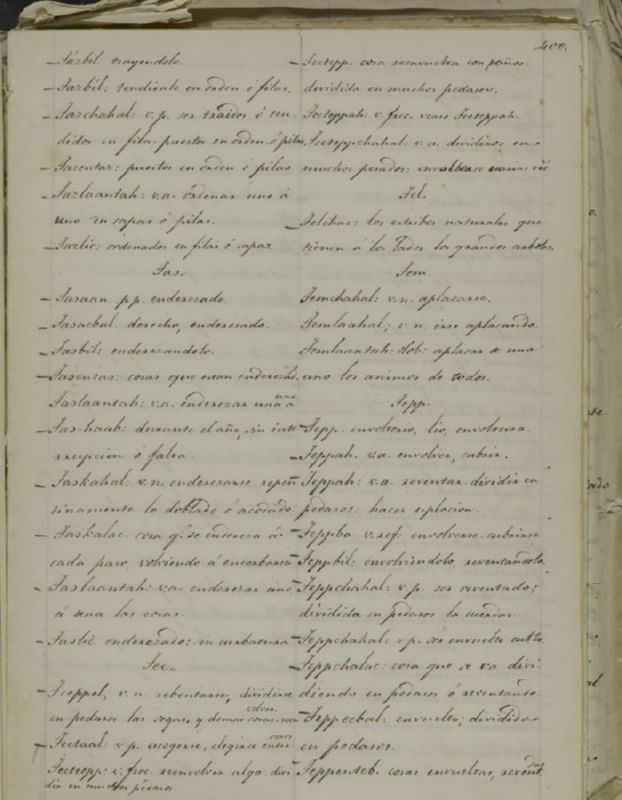 400.
Tazbil. trayendolo.
Tazbil: tendiente en orden ó filas.
Tazchahal: v.p. ser traidos ó ten
didos en fila: puestos en orden ó filas
Tazentaz: puestos en orden ó pilas
Tazlaantah: v.a. ordenar uno á
uno en capas ó pilas.
Tazlic: ordenados en filas ó capas
Tas.
Tasaan. p.p. enderezado.
Tasacbal. derecho, enderesado.
Tasbil: enderezandolo.
Tasentas: cosas que estan
Taslaantah: v.a. enderezar una á una
Tas haab: durante el año, sin inte
rrupcion ó falta.
Taskahal: v.n. enderezarse repen
tinamente lo doblado ó acodado.
Taskalac: cosa q.e se endereza á
cada paso, volviendo á encorbarse
Taslaantah: v.a. enderezar una
á una las cosas.
Taslic. enderezado: sin curbatura
Tec.
Teceppel, v.n. rebentarse, dividirse
en pedazos las sogas y demas cosas
Tectaal: v.p. escogerse, elegirse entre
Tectepp: v. frec. reenvolver algo. divi
dir en muchos pedazos
Tectepp. cosa reenvuelta con paños.
dividida en muchos pedazos.
Tecteppah: v. frec. vease Tecteppah.
Tecteppchahal: v.n. dividirse en
muchos pedazos: envolverse varias
Tel.
Telchac: los estribos naturales que
tienen á los lados los grandes arboles.
Tem.
Temchahal: v.n. aplacarse.
Temlaahal; v.n. irse aplacando.
Temlaantah: aplacar uno
uno los animos de todos.
Tepp.
Tepp. envoltorio, lio, envoltura
Teppah. v.a. envolver, cubrir.
Teppah: v.a. reventar dividir en
pedazos: hacer esplocion.
Teppba v. ref. envolverse. cubrirse
Teppbil: envolviendolo, reventandolo.
Teppchahal: v.p. ser reventado;
dividida en pedazos la cuerda.
Teppchahal: v.p. ser envuelto
Teppchalac: cosa que se va divi
diendo en pedazos ó reventando.
Teppecbal: envuelto; dividido
en pedazos.
Teppenteb. cosas envueltas,